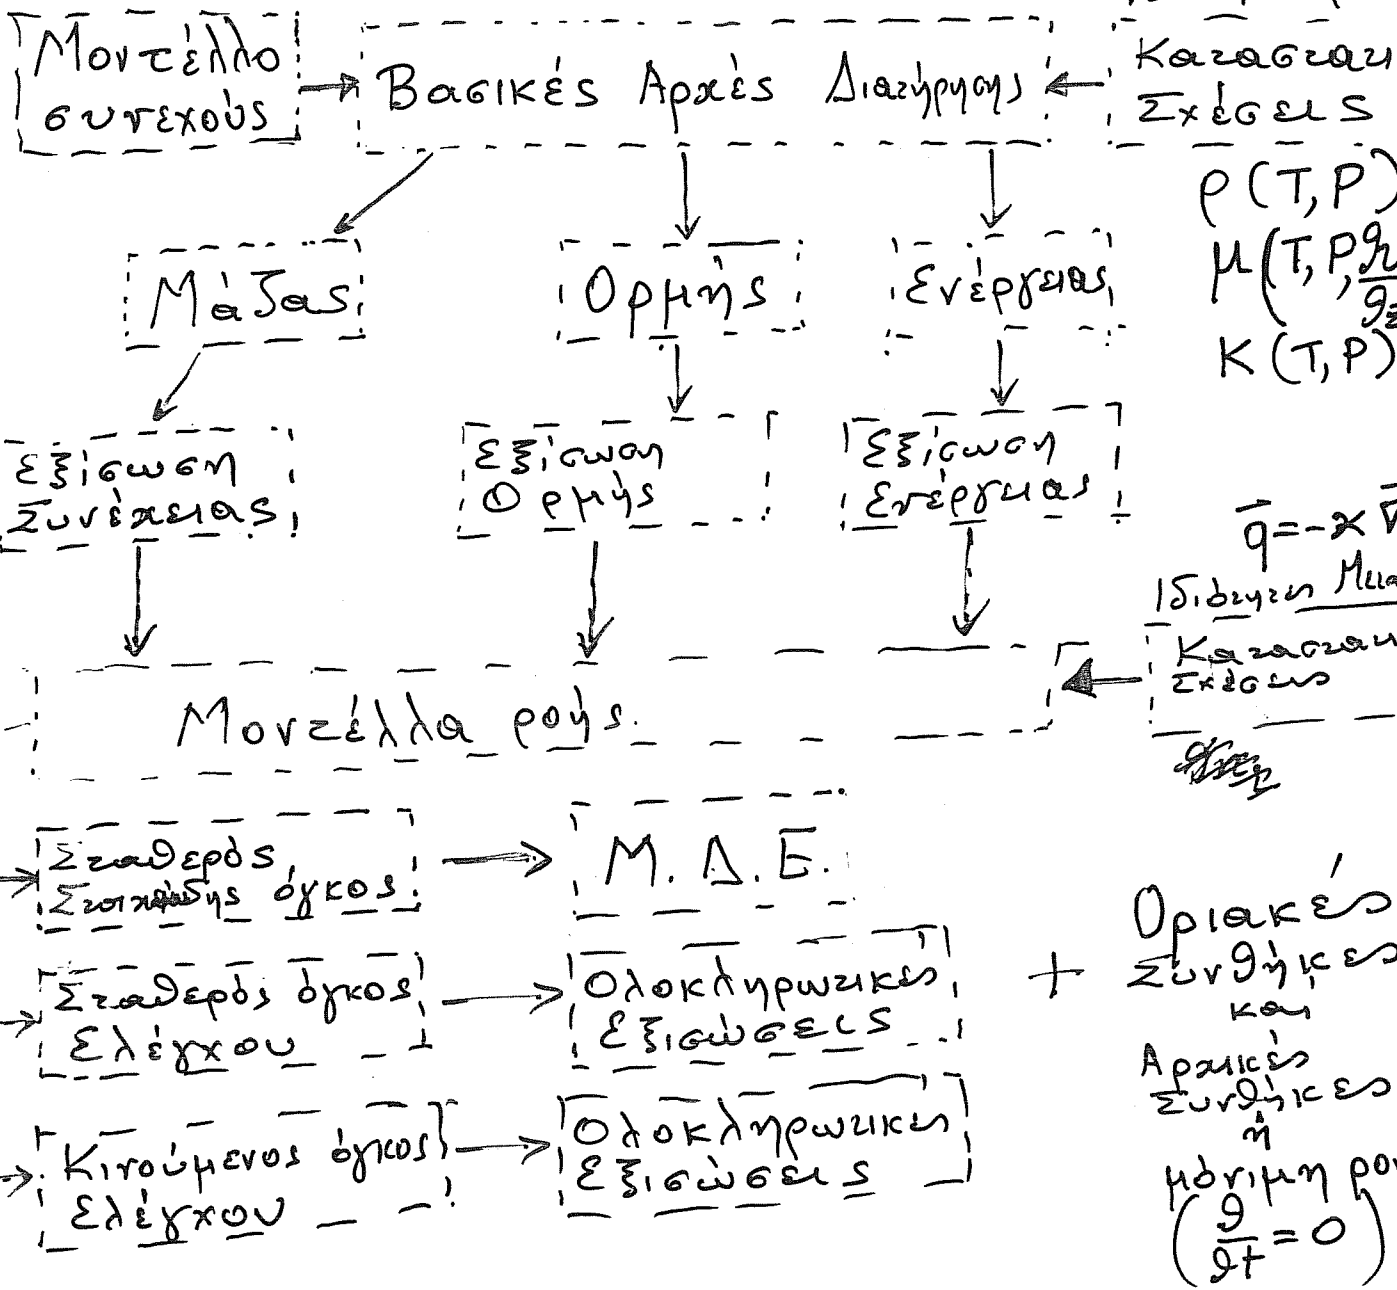 Μοντέλλο
συνεχούς
Βασικές Αρχές Διατήρησης
Σχέσεις
ρ (T, P)
μ (T, P,
K (T, P)
Μάζας
Ορμής
Ενέργειας
Εξίσωση
Συνέχειας
Εξίσωση
Ορμής
Εξίσωση
Ενέργειας
q⃗ = -κ ∇
Σχέσεις
Μοντέλλα ροής
Σταθερός
όγκος
Μ. Δ. Ε.
Σταθερός όγκος
Ελέγχου
Ολοκληρωτικές
Εξισώσεις
Κινούμενος όγκος
Ελέγχου
Ολοκληρωτικές
Εξισώσεις
+
Οριακές
Συνθήκες
και
Αρχικές
Συνθήκες
ή
μόνιμη
(∂/∂t = 0)